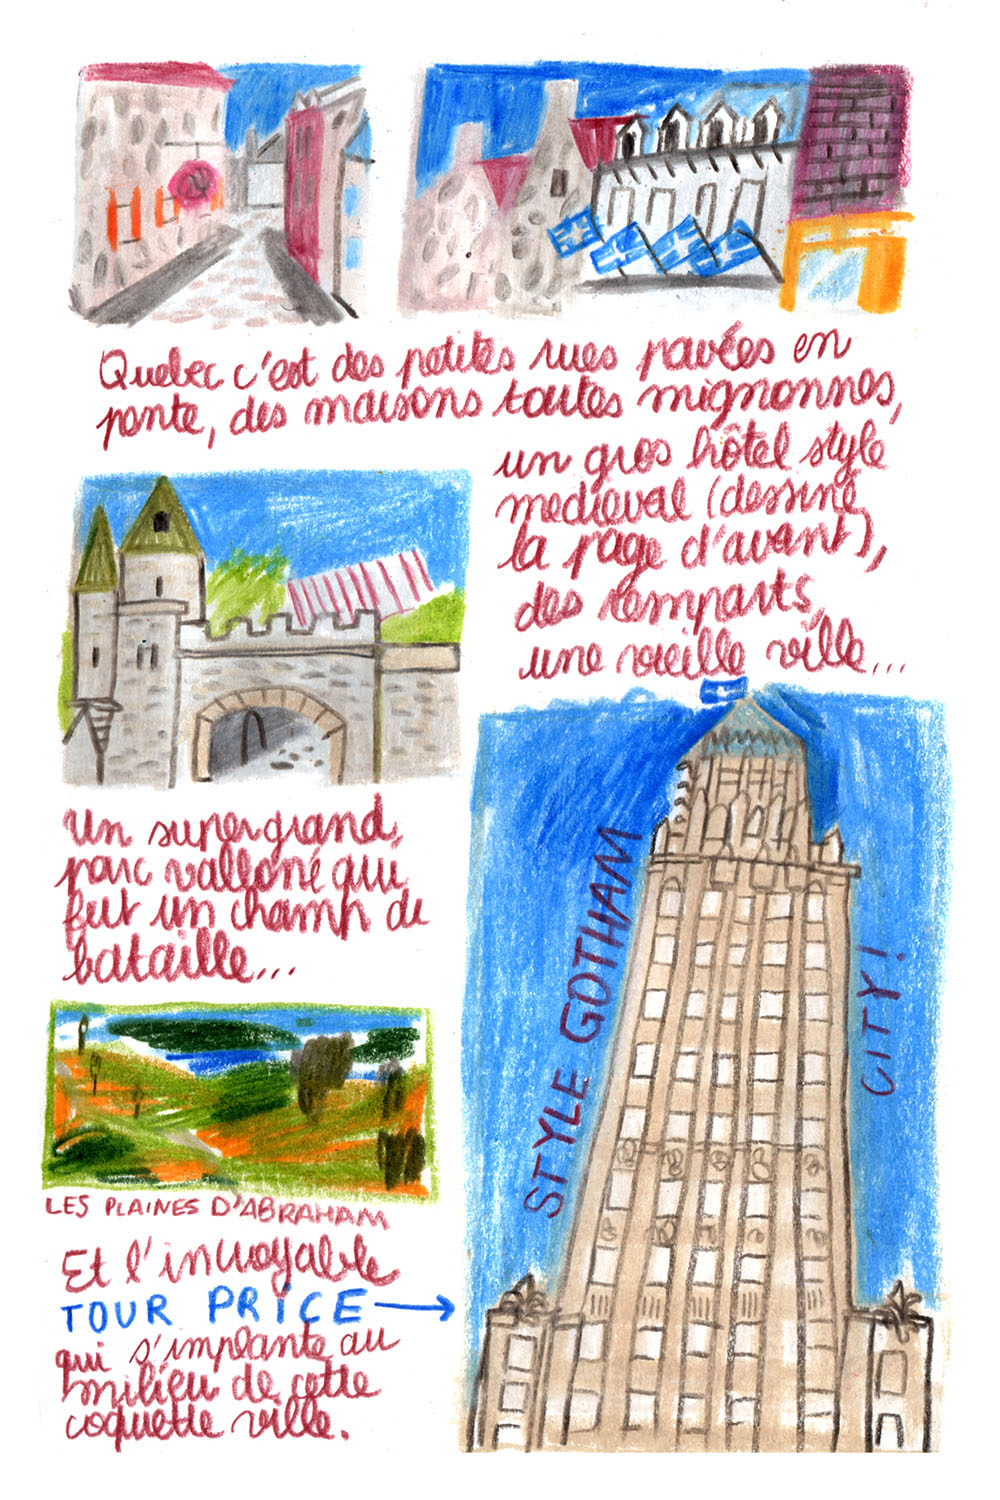 Quebec c'est des petites rues pavées en
pente, des maisons toutes mignonnes,
un gros hôtel style
medieval (dessiné
la page d'avant),
des remparts,
une vieille ville...
Un super grand
parc valloné qui
fut un champ de
bataille...
LES PLAINES D'ABRAHAM
Et l'incroyable
TOUR PRICE →
qui s'implante au
milieu de cette
coquette ville.
STYLE GOTHAM
CITY!